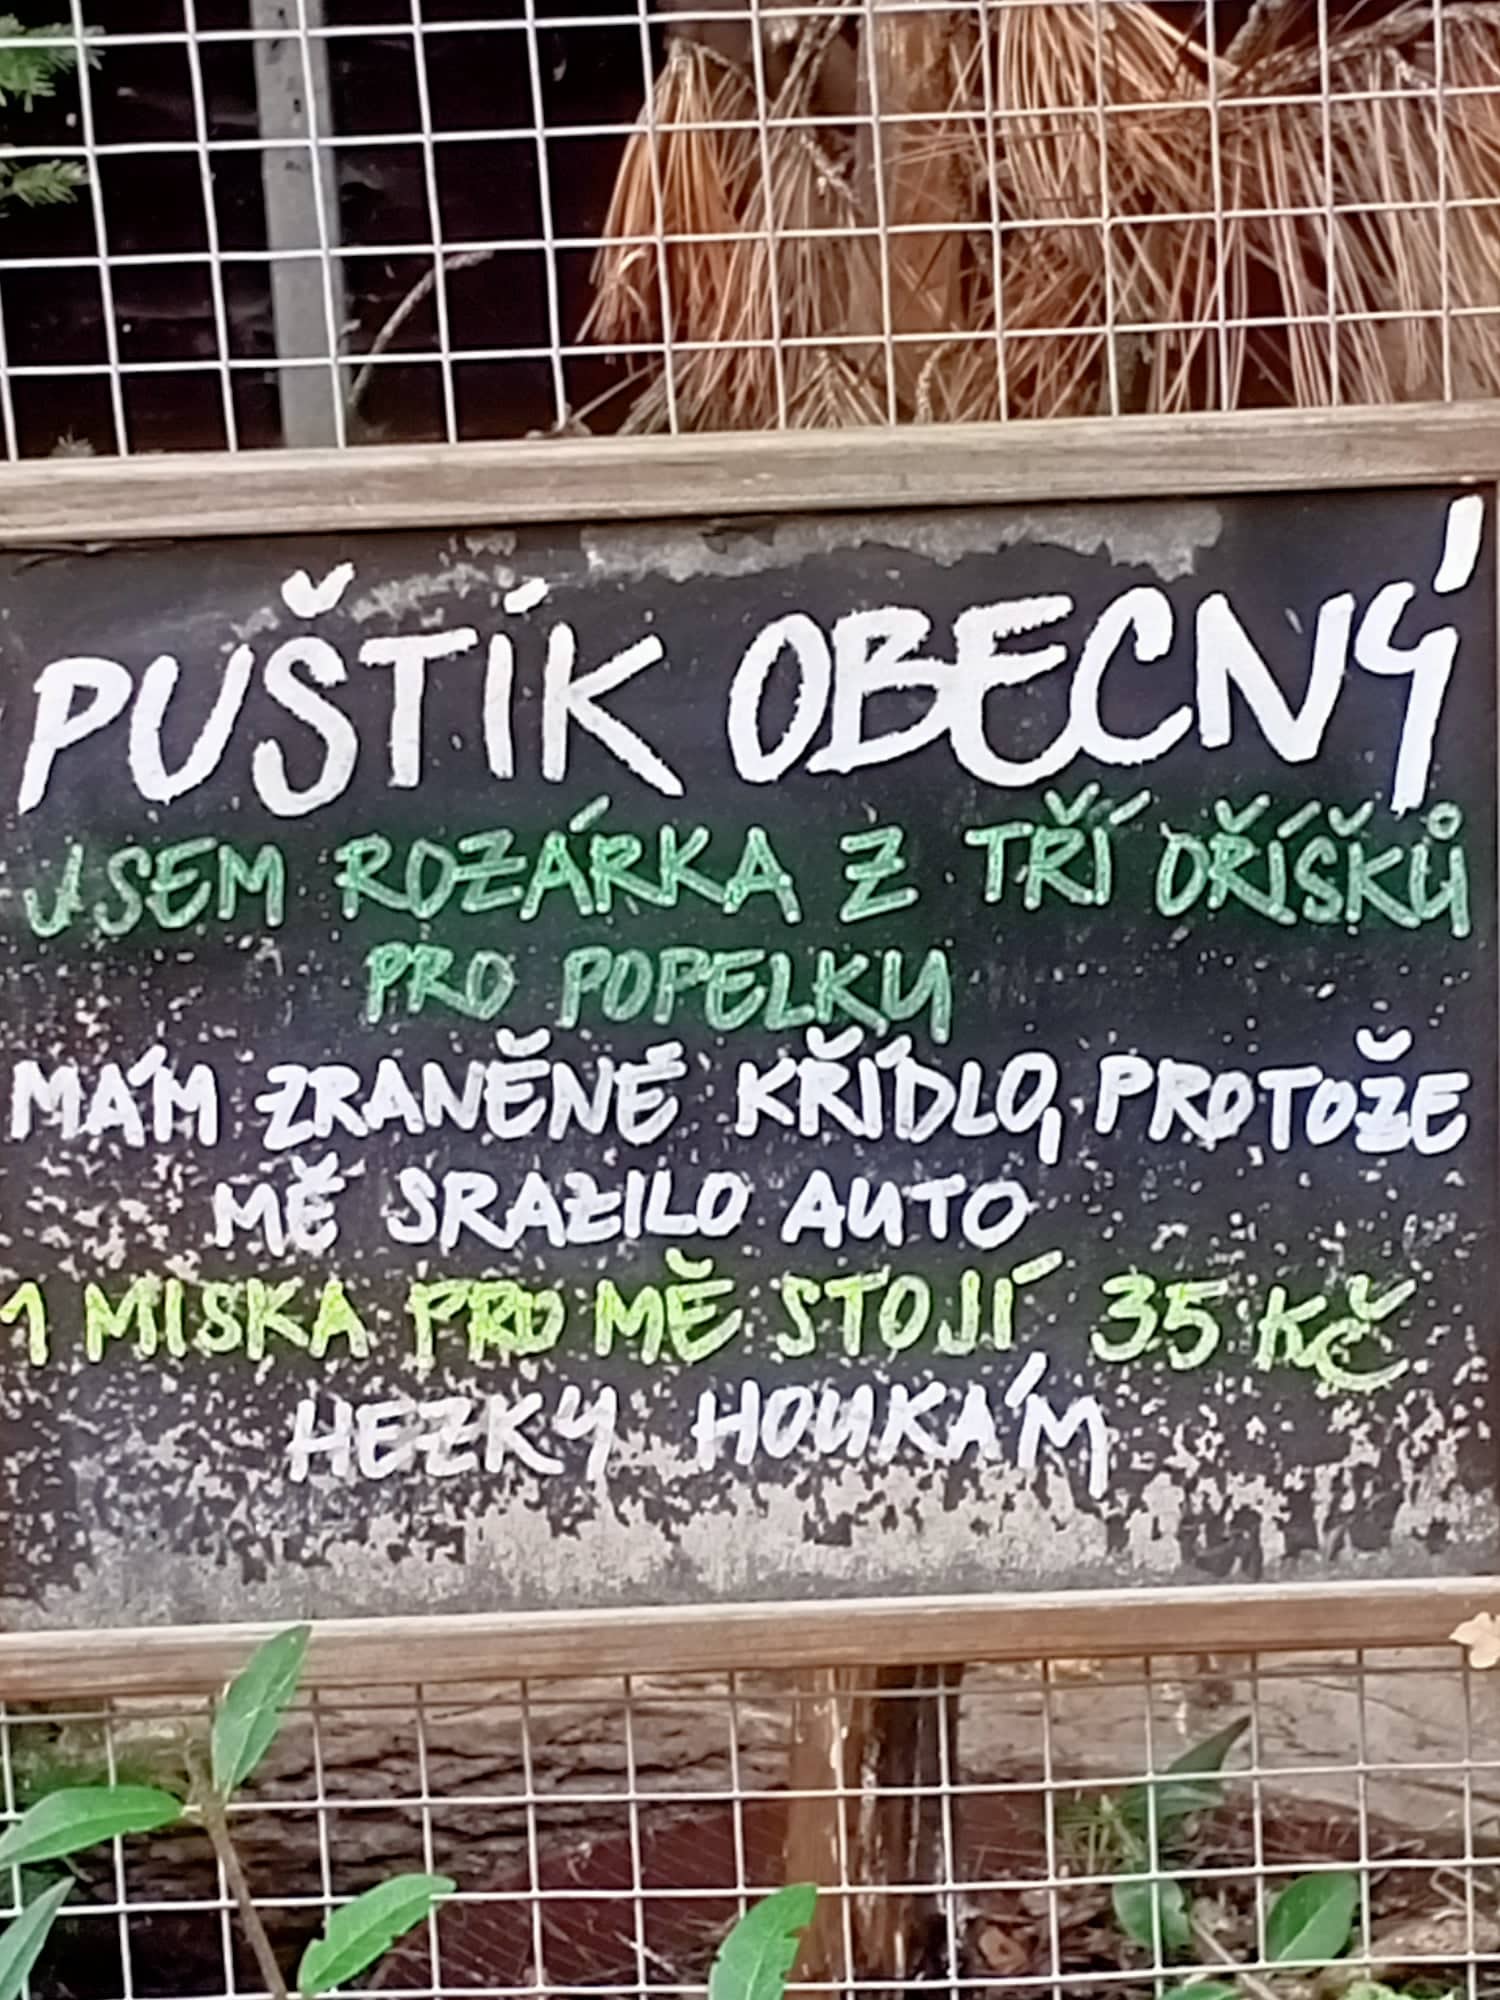 PUŠTÍK OBECNÝ
JSEM ROZÁRKA Z TŘÍ OŘÍŠKŮ
PRO POPELKU
MÁM ZRANĚNÉ KŘÍDLO, PROTOŽE
MĚ SRAZILO AUTO
1 MISKA PRO MĚ STOJÍ 35 KČ
HEZKY HOUKÁM